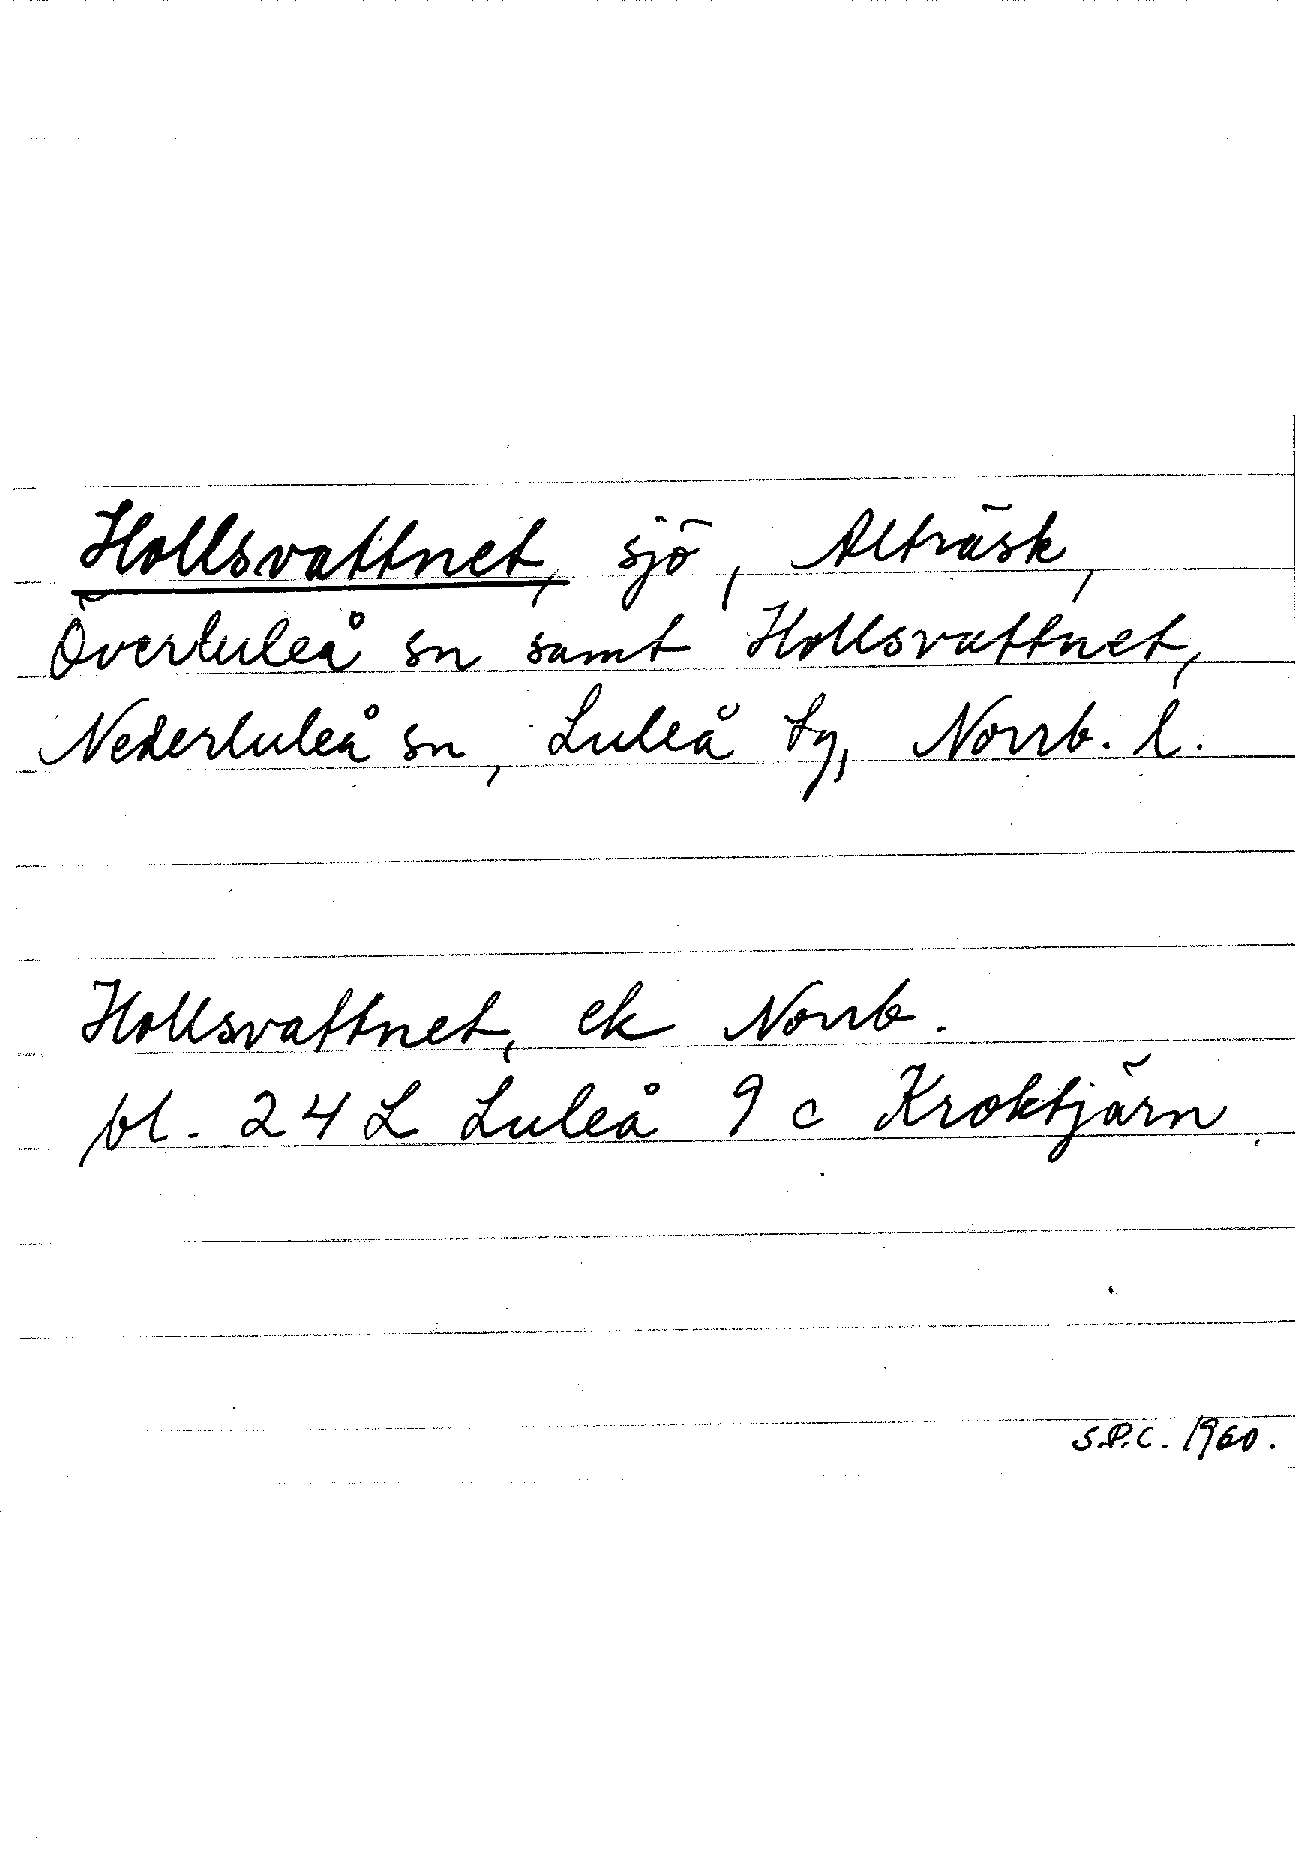 Hollsvattnet, sjö, Alträsk,
Överluleå sn samt Hollsvattnet,
Nederluleå sn, Luleå tg, Norrb. l.
Hollsvattnet, ek Norrb.
bl. 24 L Luleå 9 c Kroktjärn.
S.P.C. 1960.